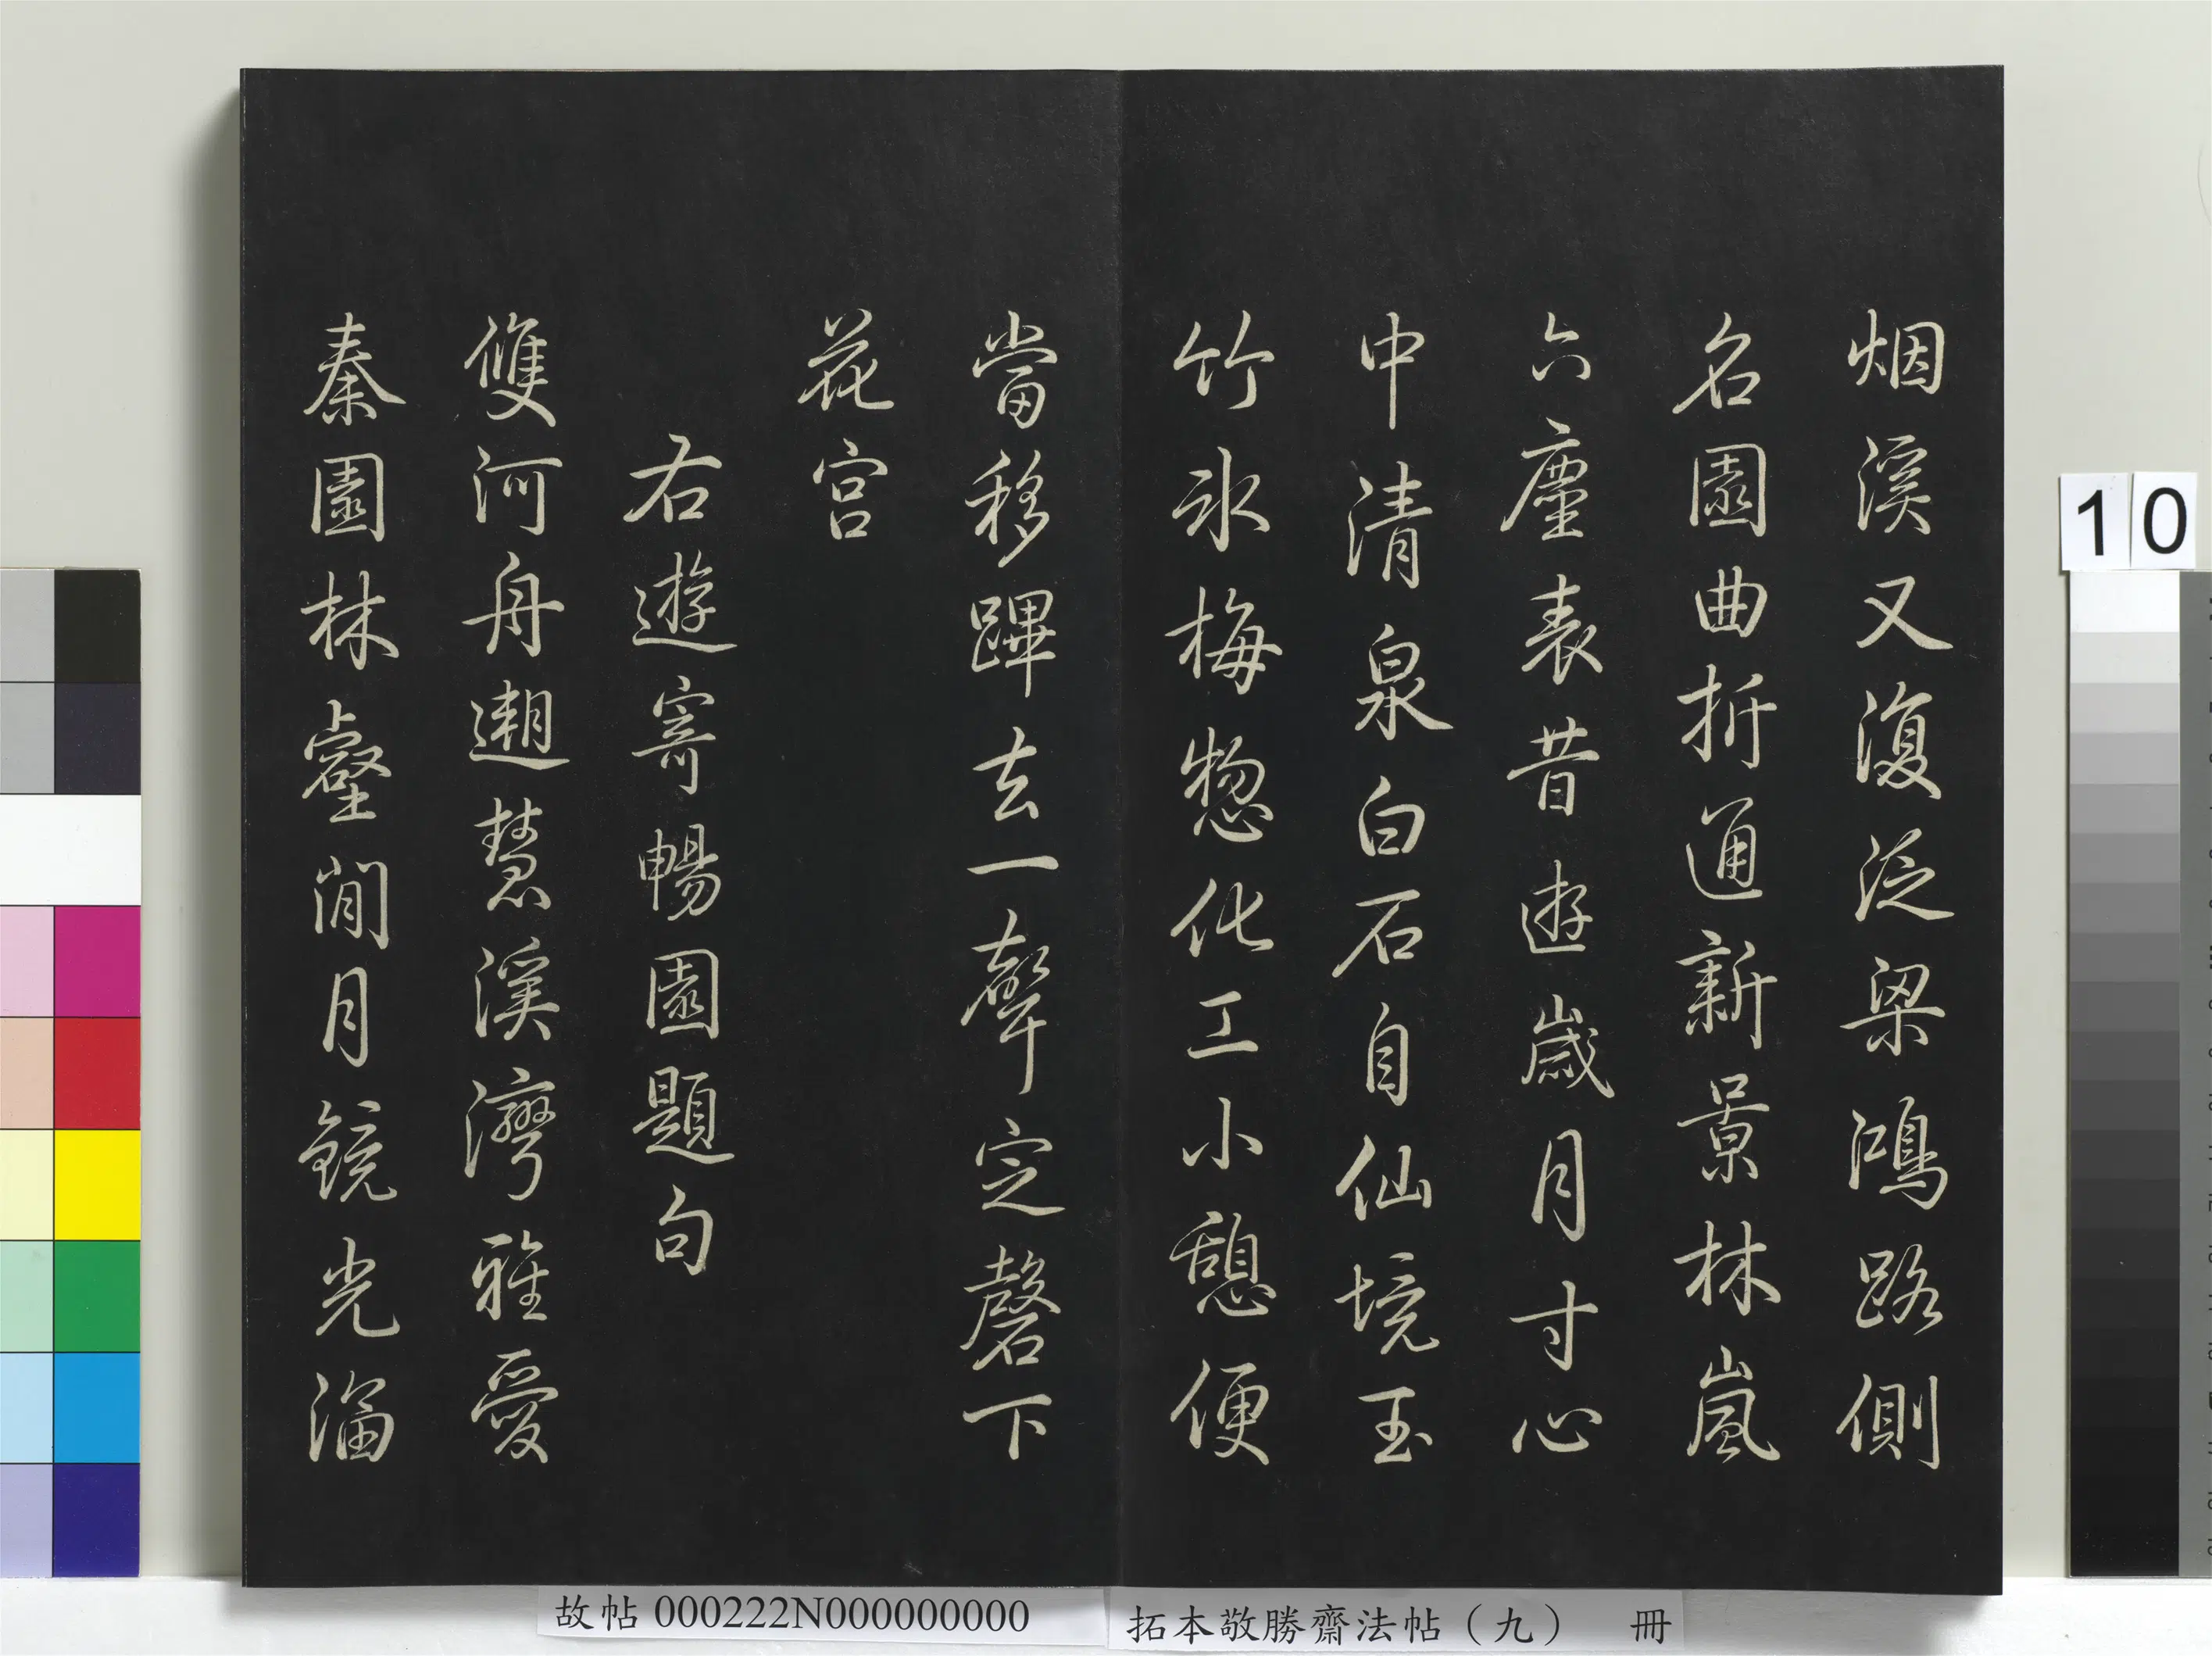 烟溪又復泛梁鴻路側
名園曲折通新景林嵐
六塵表昔遊歲月寸心
中清泉白石自仙境玉
竹氷梅惣化工小憩便
當移蹕去一聲定磬下
花宮
右遊寄暢園題句
雙河舟遡慧溪灣雅愛
秦園林壑閒月鏡光淪
10
故帖 000222N000000000
拓本敬勝齋法帖（九） 冊